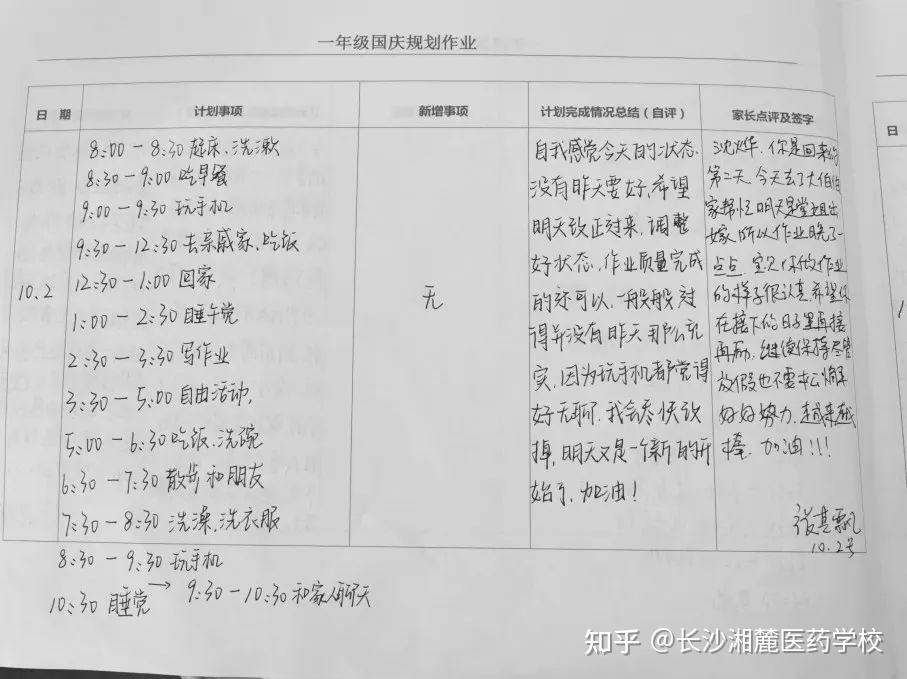 一年级国庆规划作业
日 期
计划事项
新增事项
计划完成情况总结（自评）
家长点评及签字
日
10.2
8:00-8:30 起床、洗漱
8:30-9:00 吃早餐
9:00-9:30 玩手机
9:30-12:30 去亲戚家、吃饭
12:30-1:00 回家
1:00-2:30 睡午觉
2:30-3:30 写作业
3:30-5:00 自由活动,
5:00-6:30 吃饭、洗碗
6:30-7:30 散步和朋友
7:30-8:30 洗澡、洗衣服
8:30-9:30 玩手机
10:30 睡觉 → 9:30-10:30 和家人聊天
无
自我感觉今天的状态
没有昨天要好,希望
明天改正过来,调整
好状态,作业质量完成
的还可以,一般般,过
得并没有昨天那么充
实,因为玩手机都觉得
好无聊,我会尽快改
掉,明天又是一个新的开
始了,加油!
你是回来的
第二天,今天去了大伯伯
家帮忙明天是堂姐出
嫁,所以作业晚了一
点点,宝贝你做作业
的样子很认真,希望你
在接下的日子里再接
再励,继续保持尽管
放假也不要
好好努力,越来越
棒,加油!!!
10.2号
知乎 @长沙湘麓医药学校